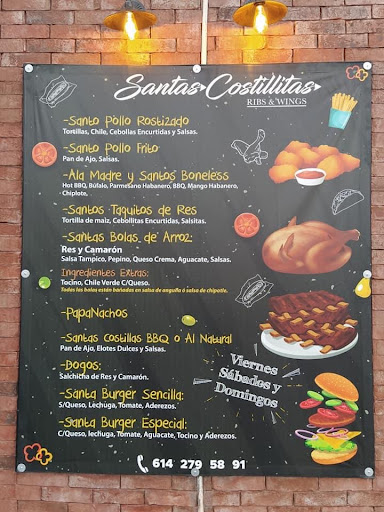 Santas Costillitas
RIBS & WINGS
-Santo Pollo Rostizado
Tortillas, Chile, Cebollas Encurtidas y Salsas.
-Santo Pollo Frito
Pan de Ajo, Salsas.
-Ala Madre y Santos Boneless
Hot BBQ, Búfalo, Parmesane Habanero, BBQ, Mango Habanero,
Chiplote.
-Santos Taquitos de Res
Tortilla de maíz, Cebollitas Encurtidas, Salsitas.
-Santas Bolas de Arroz:
Res y Camarón
Salsa Tampico, Pepino, Queso Crema, Aguacate, Salsas.
Ingredientes Extras:
Tocino, Chile Verde C/Queso.
Todas las bolas están bañadas en salsa de anguila ó salsa de chipotle.
-PapaNachos
-Santas Costillas BBQ o Al Natural
Pan de Ajo, Elotes Dulces y Salsas.
-Dogos:
Salchicha de Res y Camarón.
-Santa Burger Sencilla:
S/Queso, Lechuga, Tomate, Aderezos.
-Santa Burger Especial:
C/Queso, lechuga, Tomate, Aguacate, Tocino y Aderezos.
Viernes
Sábados y
Domingos
614 279 58 91